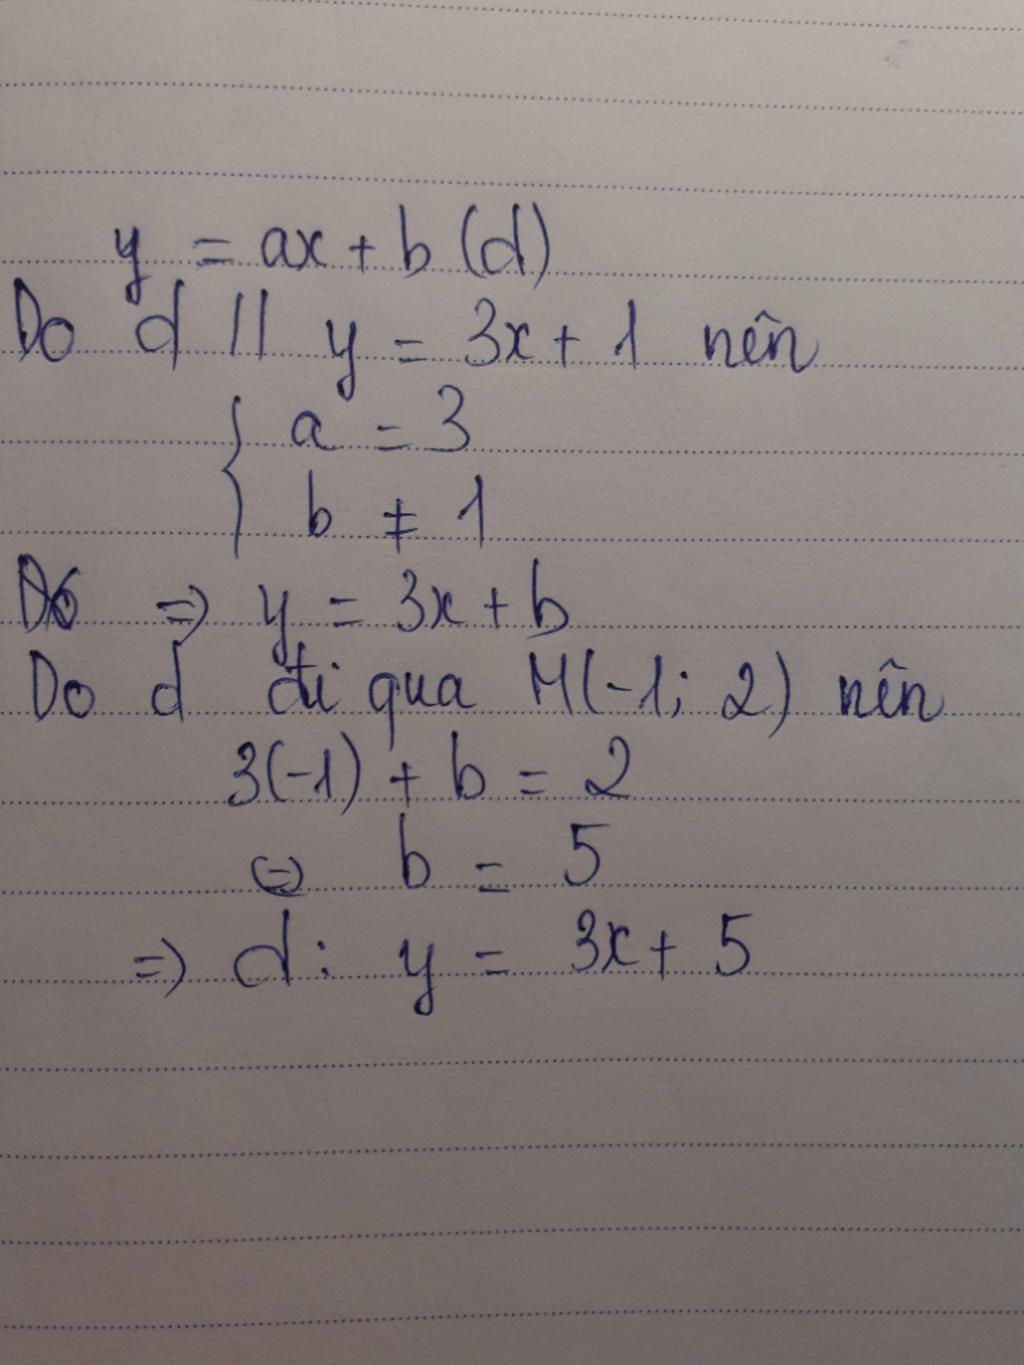 y = ax + b (d)
Do d // y = 3x + 1 nên
{ a = 3
b ≠ 1
=> y = 3x + b
Do d đi qua M(-1; 2) nên
3(-1) + b = 2
<=> b = 5
=> d: y = 3x + 5